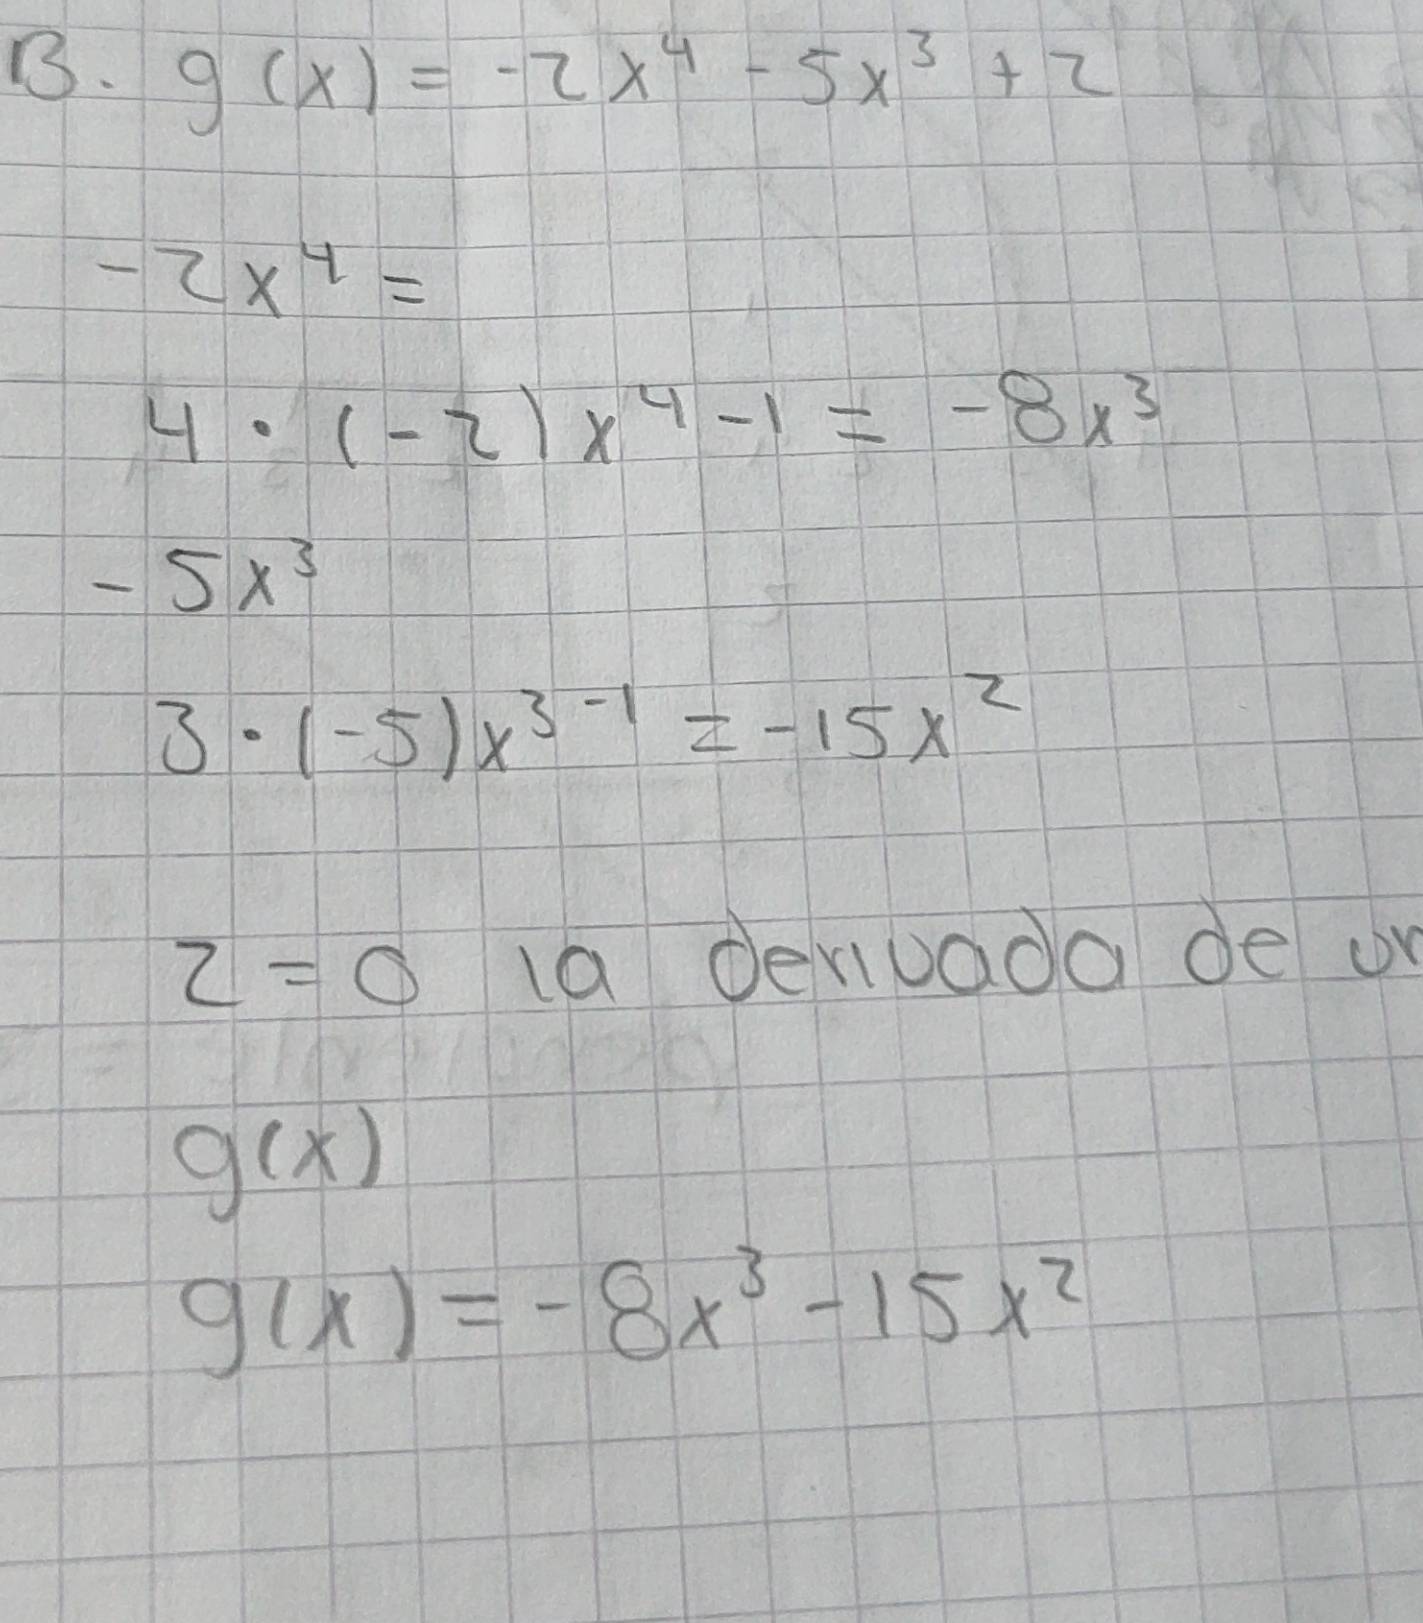 B. g(x) = -2x⁴ - 5x³ + 2
-2x⁴ =
4 · (-2)x⁴ - 1 = -8x³
-5x³
3 · (-5)x³⁻¹ = -15x²
2 = 0 la derivada de
g(x)
g(x) = -8x³ - 15x²